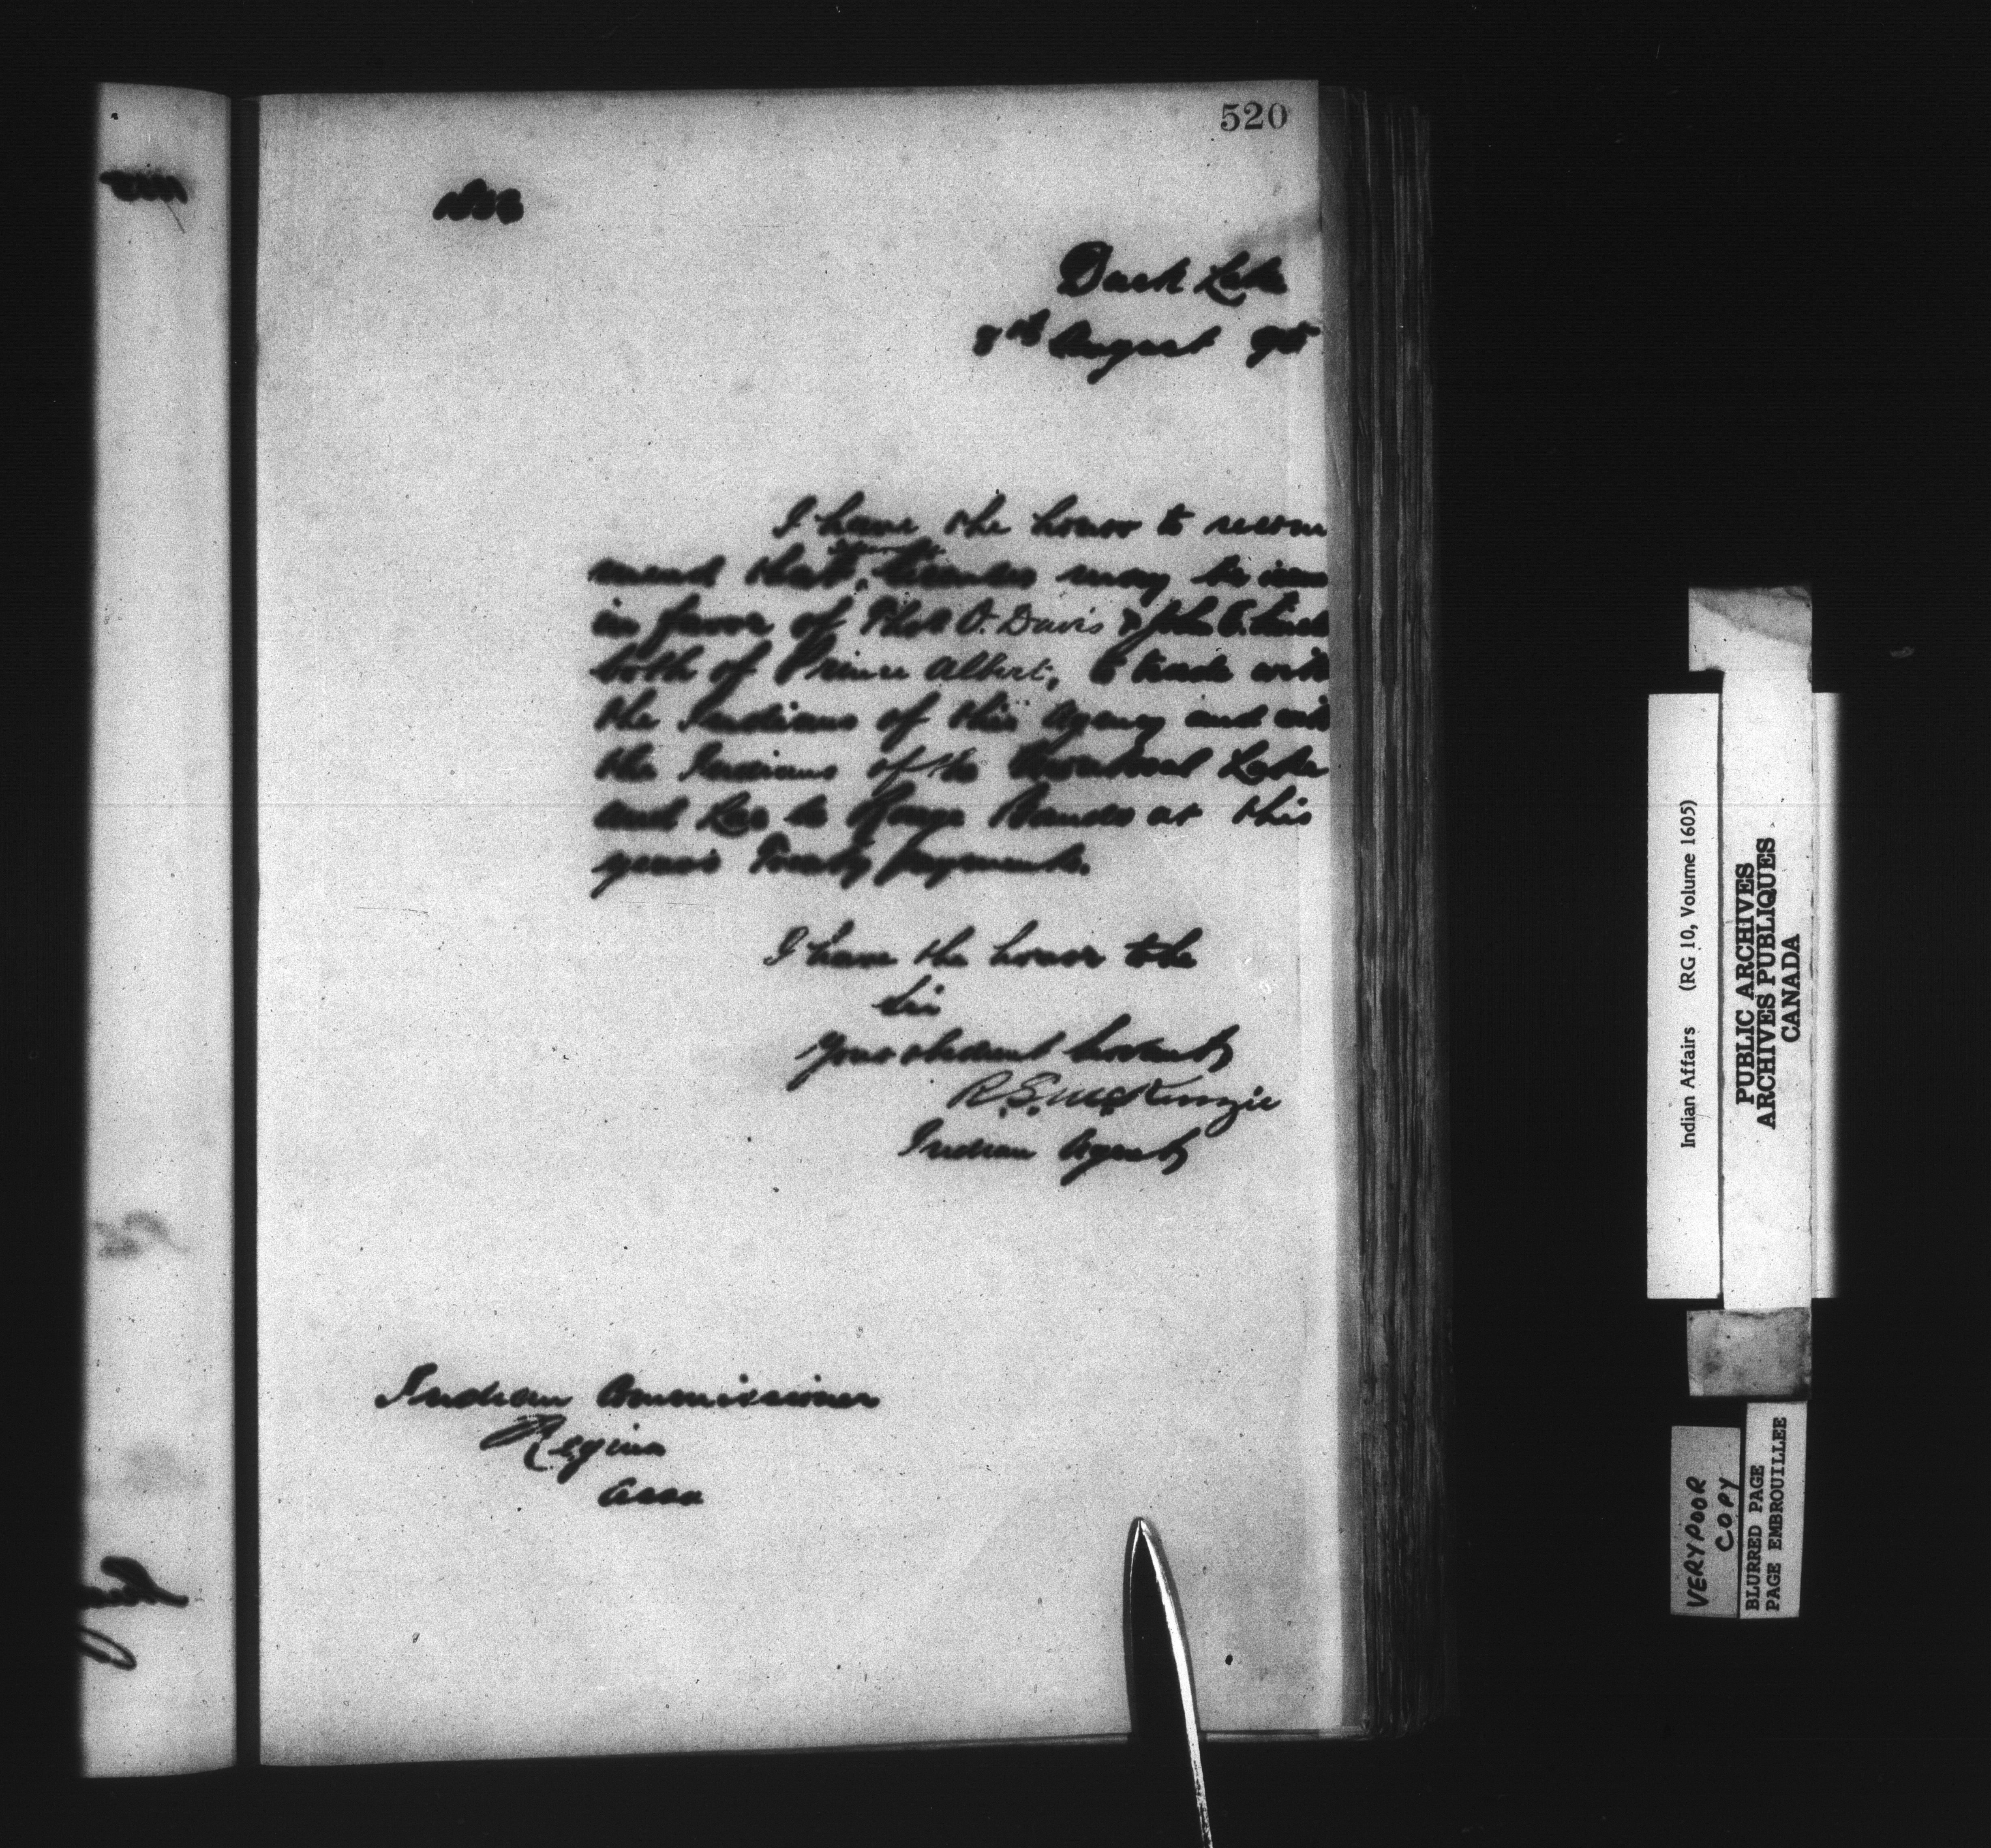 520
Duck Lake
8th August 95
I have the honor to recom
mend that licenses may be issu
in favor of Thos O. Davis & John E.
both of Prince Albert, to trade with
the Indians of this Agency and with
the Indians of the Montreal Lake
and Lac la Ronge Bands at this
years Treaty payments.
I have the honor to be
Sir
Your obedient Servant
R. S. McKenzie
Indian Agent
Indian Commissioner
Regina
Assa
Indian Affairs (RG 10, Volume 1605)
PUBLIC ARCHIVES
ARCHIVES PUBLIQUES
CANADA
VERY POOR
COPY
BLURRED PAGE
PAGE EMBROUILLEE